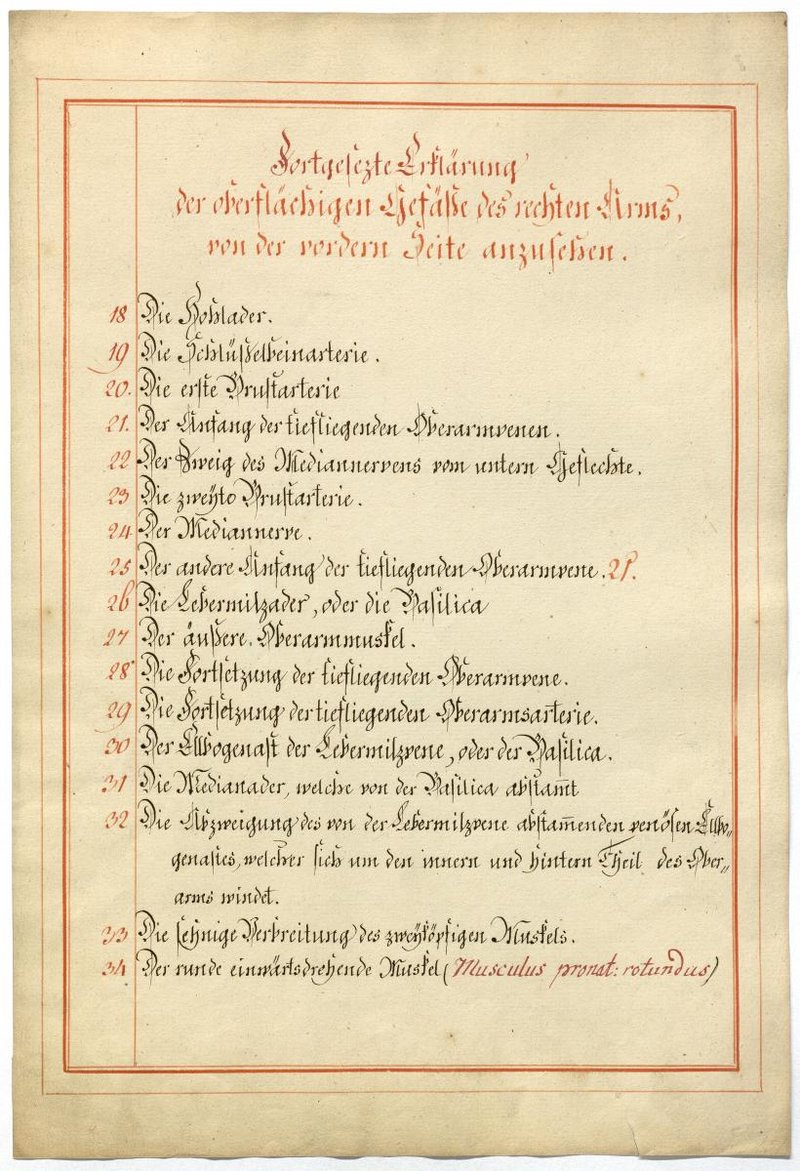 Fortgesezte Erklärung
der oberflächigen Gefäße des rechten Arms,
von der vordern Seite anzusehen.
18 Die Hohlader.
19 Die Schlüßelbeinarterie.
20. Die erste Brustarterie
21. Der Anfang der tiefliegenden Oberarmvenen.
22 Der Zweig des Mediannervens vom untern Geflechte.
23 Die zweÿte Brustarterie.
24 Der Mediannerve.
25 Der andere Anfang der tiefliegenden Oberarmvene. 21.
26 Die Lebermilzader, oder die Basilica
27 Der äußere Oberarmmuskel.
28 Die Fortsetzung der tiefliegenden Oberarmvene.
29 Die Fortsetzung der tiefliegenden Oberarmsarterie.
30 Der Ellbogenast der Lebermilzvene, oder der Basilica.
31 Die Medianader, welche von der Basilica abstam̅t
32 Die Abzweigung des von der Lebermilzvene abstam̅enden venösen Ellbo„
genastes, welcher sich um den innern und hintern Theil des Ober„
arms windet.
33 Die sehnige Verbreitung des zweÿköpfigen Muskels.
34 Der runde einwärtsdrehende Muskel (Musculus pronat: rotundus)